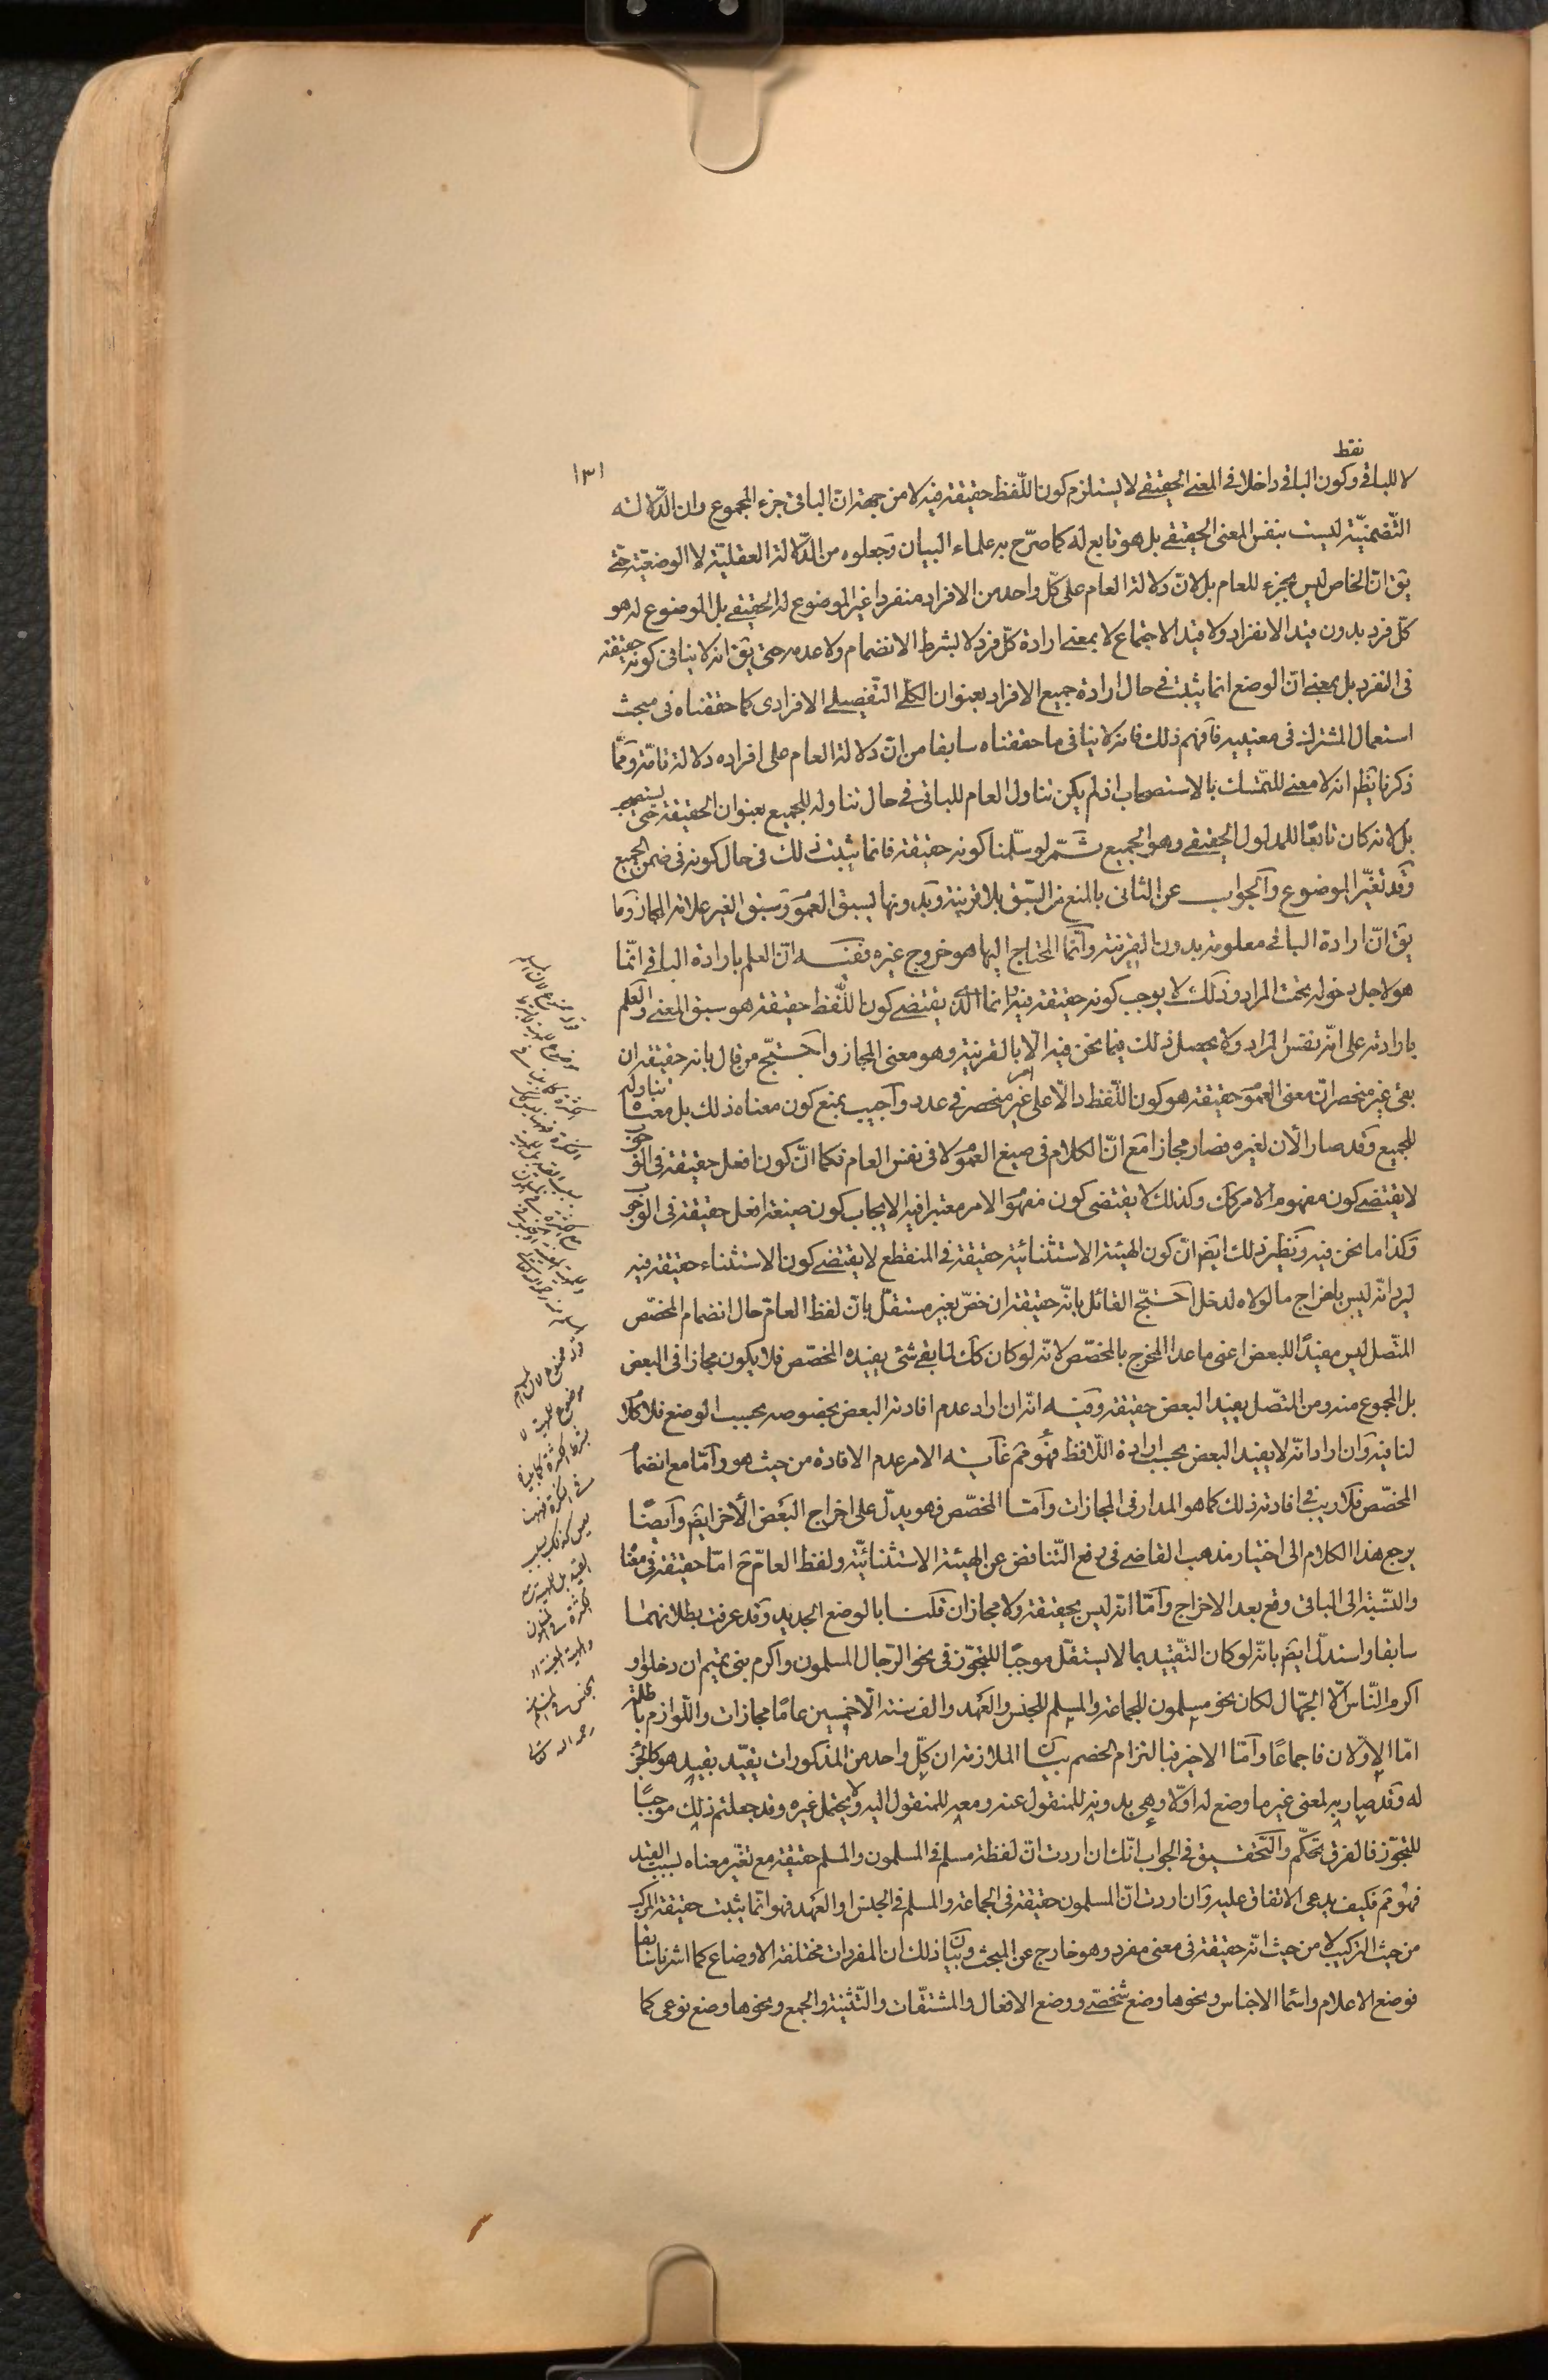 ١٣١
فقط
لا للباقى وكون الباقى داخلا فى المعنى الحقيقى لا يستلزم كون اللّفظ حقيقة فيه لا من جهة ان الباقى جزء المجموع وان الدّلالة
التّضمنيّة ليست بنفس المعنى الحقيقى بل هو تابع له كما صرّح به علماء البيان وجعلوه من الدّلالة العقليّة لا الوضعيّة حتى
يق انّ الخاص ليس بجزء للعام بل لانّ دلالة العام على كلّ واحد من الافراد منفردا غير الموضوع له الحقيقى بل الموضوع له هو
كلّ فرد بدون قيد الانفراد ولا قيد الاجتماع لا بمعنى ارادة كلّ فرد لا بشرط الانضمام ولا عدمه حتى يق انه لا ينافى كونه حقيقة
فى المفرد بل بمعنى انّ الوضع انما يثبت فى حال ارادة جميع الافراد بعنوان الكلّى التّفصيلى الافرادى كما حققناه فى مبحث
استعمال المشترك فى معنييه فافهم ذلك فانه لا ينافى ما حققناه سابقا من انّ دلالة العام على افراده دلالة تامّة وممّا
ذكرنا يظهر انه لا معنى للتمسّك بالاستصحاب اذ لم يكن تناول العام للباقى فى حال تناوله للجميع بعنوان الحقيقة حتى يستصحب
بل لانه كان تابعًا للمدلول الحقيقى وهو الجميع ثمّ لو سلّمنا كونه حقيقة فانما يثبت ذلك فى حال كونه فى ضمن الجميع
وقد تغيّر الموضوع والجواب عن الثانى بالمنع من السّبق بلا قرينة وبدونها يسبق العموم وسبق الغير علامة المجاز وما
يق انّ ارادة الباقى معلومة بدون القرينة وانّما المحتاج اليها هو خروج غيره ففيه انّ العلم بارادة الباقى انّما
هو لاجل دخوله تحت المراد وذلك لا يوجب كونه حقيقة فيه وانما الذى يقتضى كون اللّفظ حقيقة هو سبق المعنى والعلم
بارادته على انّه نفس المراد ولا يحصل ذلك فيما نحن فيه الّا بالقرينة وهو معنى المجاز واحتجّ من قال بانه حقيقة ان
بقى غير منحصر انّ معنى العموم حقيقة هو كون اللّفظ دالّا على امر غير منحصر فى عدد واجيب بمنع كون معناه ذلك بل معناه تناوله
للجميع وقد صار الأن لغيره فصار مجازا مع انّ الكلام فى صيغ العموم لا فى نفس العام فكما انّ كون افعل حقيقة فى الوجوب
لا يقتضى كون مفهوم الامر كك وكذلك لا يقتضى كون مفهوم الامر معتبرا فيه الايجاب كون صيغة افعل حقيقة فى الوجوب
وكذا ما نحن فيه ونظير ذلك ايضم انّ كون الهيئة الاستثنائية حقيقة فى المنقطع لا يقتضى كون الاستثناء حقيقة فيه
ليرد انّه ليس باخراج ما لولاه لدخل احتجّ القائل بانّه حقيقة ان خصّ بغير مستقلّ بانّ لفظ العامّ حال انضمام المخصّص
المتّصل ليس مفيدًا للبعض اعنى ما عدا المخرج بالمخصّص لانّه لو كان كك لما بقى شئ يفيده المخصّص فلا يكون مجازا فى البعض
بل المجموع منه ومن المتّصل يفيد البعض حقيقة وفيه انّه ان اراد عدم افادته البعض بخصوصه بحسب الوضع فلا كلام
لنا فيه وان اراد انّه لا يفيد البعض بحسب ارادة اللّافظ فهو مم غاية الامر عدم الافادة من حيث هو وامّا مع انضمام
المخصّص فلا ريب فى افادته ذلك كما هو المدار فى المجازات وامّا المخصّص فهو يدلّ على اخراج البعض الأخر ايضم وايضًا
يرجع هذا الكلام الى اختيار مذهب القاضى فى رفع التّناقض عن الهيئة الاستثنائيّة ولفظ العامّ ح امّا حقيقة فى معناه
والنّسبة الى الباقى وقع بعد الاخراج وامّا انه ليس بحقيقة ولا مجاز ان قلنا بالوضع الجديد وقد عرفت بطلانهما
سابقا واستدلّ ايضم بانّه لو كان التّقييد بما لا يستقلّ موجبًا للتجوّز فى نحو الرّجال المسلمون واكرم بنى تميم ان دخلوا و
اكرم النّاس الّا الجهّال لكان نحو مسلمون للجماعة والمسلم للجنس والعهد والف سنة الّا خمسين عامًا مجازات واللّوازم باطلة
امّا الاولان فاجماعًا وامّا الاخير فبالتزام الخصم بيان الملازمة ان كلّ واحد من المذكورات يقيّد بقيد هو كالجزء
له وقد صار به لمعنى غير ما وضع له اوّلا وهى بدونه للمنقول عنه ومعه للمنقول اليه ولا يحتمل غيره وقد جعلتم ذلك موجبًا
للتجوّز فالفرق تحكّم والتّحقيق فى الجواب انّك ان اردت انّ لفظة مسلم فى المسلمون والمسلم حقيقة مع تغيّر معناه بسبب القيد
فهو مم فكيف يدعى الاتفاق عليه وان اردت انّ المسلمون حقيقة فى الجماعة والمسلم فى الجنس او العهد فهو انّما يثبت حقيقة المركب
من حيث التركيب لا من حيث انّه حقيقة فى معنى مفرد وهو خارج عن المبحث وبيان ذلك ان المفردات مختلفة الاوضاع كما اشرنا سابقا
فوضع الاعلام واسماء الاجناس ونحوها وضع شخصّى ووضع الافعال والمشتقّات والتّثنية والجمع ونحوها وضع نوعى كما